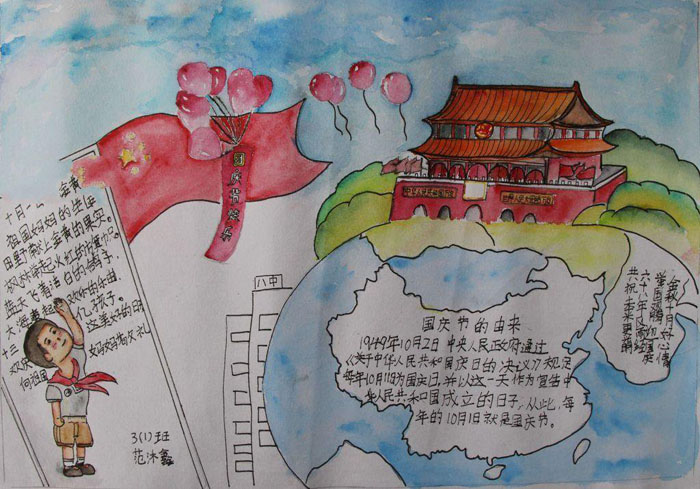 国庆节快乐
十月
祖国妈妈的生日
田野献上金黄的果实
枫林举起火红的旗帜。
蓝天飞满洁白的鸽子,
大海奏起欢乐的乐曲
十三亿孩子。
欢乐 这美好的日
向祖国妈妈敬个礼
3(1)班
范沐鑫
八中
国庆节的由来
1949年10月2日中央人民政府通过
《关于中华人民共和国国庆日的决议》规定
每年10月1日为国庆日,并以这一天作为宣告中
华人民共和国成立的日子,从此,每
年的10月1日就是国庆节。
金秋十月
举国
六十八年风雨
共祝未来更